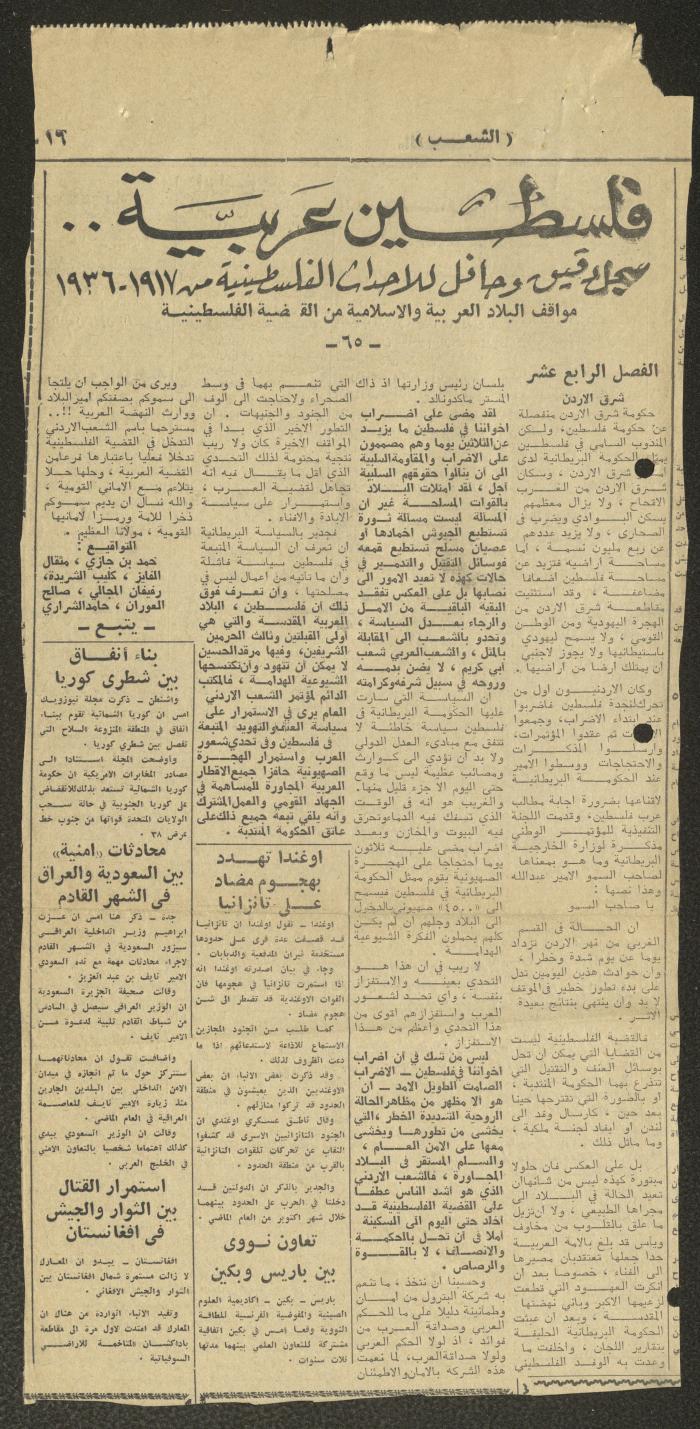 ١٦
( الشعب )
فلسطين عربية ..
سجل دقيق وحافل للاحداث الفلسطينية من ١٩١٧-١٩٣٦
مواقف البلاد العربية والاسلامية من القضية الفلسطينية
- ٦٥ -
الفصل الرابع عشر
شرق الاردن
حكومة شرق الاردن منفصلة
عن حكومة فلسطين، ولكن
المندوب السامي في فلسطين
الحكومة البريطانية لدى
شرق الاردن ، وسكان
شرق الاردن من العرب
الاقحاح ، ولا يزال معظمهم
يسكن البوادي ويضرب في
الصحارى ، ولا يزيد عددهم
عن ربع مليون نسمة ، أما
مساحة اراضيه فتزيد عن
مساحة فلسطين اضعافا
مضاعفة ، وقد استثنيت
مقاطعة شرق الاردن من
الهجرة اليهودية ومن الوطن
القومي ، ولا يسمح ليهودي
باستيطانها ولا يجوز لاجنبي
ان يمتلك ارضا من اراضيها .
وكان الاردنيون اول من
تحرك لنجدة فلسطين فاضربوا
عند ابتداء الاضراب، وجمعوا
ثم عقدوا المؤتمرات،
وارسلوا المذكرات
والاحتجاجات ووسطوا الامير
عند الحكومة البريطانية
لاقناعها بضرورة اجابة مطالب
عرب فلسطين، وقدمت اللجنة
التنفيذية للمؤتمر الوطني
مذكرة لوزارة الخارجية
البريطانية وما هو بمعناها
لصاحب السمو الامير عبدالله
وهذا نصها :
يا صاحب السمو
ان الحالة في القسم
الغربي من نهر الاردن تزداد
يوما عن يوم شدة وخطرا ،
وان حوادث هذين اليومين تدل
على بدء تطور خطير في الموقف
لا بد وان ينتهي بنتائج بعيدة
الاثر .
فالقضية الفلسطينية ليست
من القضايا التي يمكن ان تحل
بوسائل العنف والتقتيل التي
تتذرع بهما الحكومة المنتدبة ،
او بالصورة التي تقترحها حينا
بعد حين ، كارسال وفد الى
لندن او ايفاد لجنة ملكية ،
وما ماثل ذلك .
بل على العكس فان حلولا
مبتورة كهذه ليس من شانها ان
تعيد الحالة في البلاد الى
مجراها الطبيعي ، ولا ان تزيل
ما علق بالقلوب من مخاوف
وياس قد بلغ بالامة العربية
حدا جعلها تعتقد بان مصيرها
الى الفناء ، خصوصا بعد ان
انكرت العهود التي قطعت
لزعيمها الاكبر وباني نهضتها
المقدسة ، وبعد ان عبثت
الحكومة البريطانية الحليفة
بتقارير اللجان ، واخلفت ما
وعدت به الوفد الفلسطيني
بلسان رئيس وزارتها اذ ذاك
المستر ماكدونالد .
لقد مضى على اضراب
اخواننا في فلسطين ما يزيد
عن الثلاثين يوما وهم مصممون
على الاضراب والمقاومة السلبية
الى ان ينالوا حقوقهم السلبية
اجل ، لقد امتلات البلاد
بالقوات المسلحة غير ان
المسالة ليست مسالة ثورة
تستطيع الجيوش اخمادها او
عصيان مسلح تستطيع قمعه
فوسائل التقتيل والتدمير في
حالات كهذه لا تعيد الامور الى
نصابها بل على العكس تفقد
البقية الباقية من الامل
والرجاء بعدل السياسة ،
وتحدو بالشعب الى المقابلة
بالمثل ، والشعب العربي شعب
ابي كريم ، لا يضن بدمه
وروحه في سبيل شرفه وكرامته
ان السياسة التي سارت
عليها الحكومة البريطانية في
فلسطين سياسة خاطئة لا
تتفق مع مبادىء العدل الدولي
ولا بد ان تؤدي الى كوارث
ومصائب عظيمة ليس ما وقع
حتى اليوم الا جزء قليل منها.
والغريب هو انه في الوقت
الذي تسفك فيه الدماء وتحرق
فيه البيوت والمخازن وبعد
اضراب مضى عليه ثلاثون
يوما احتجاجا على الهجرة
الصهيونية يقوم ممثل الحكومة
البريطانية في فلسطين فيسمح
الى «٤٥٠٠» صهيوني بالدخول
الى البلاد وجلهم ان لم يكن
كلهم يحملون الفكرة الشيوعية
الهدامة .
لا ريب في ان هذا هو
التحدي بعينه والاستفزاز
بنفسه ، واي تحد لشعور
العرب واستفزازهم اقوى من
هذا التحدي واعظم من هذا
الاستفزاز .
ليس من شك في ان اضراب
اخواننا في فلسطين - الاضراب
الصامت الطويل الامد - ان
هو الا مظهر من مظاهر الحالة
الروحية الشديدة الخطر ، التي
يخشى من تطورها ويخشى
معها على الامن العام ،
والسلم المستقر في البلاد
المجاورة ، فالشعب الاردني
الذي هو اشد الناس عطفا
على القضية الفلسطينية قد
اخلد حتى اليوم الى السكينة
املا في ان تحل بالحكمة
والانصاف ، لا بالقوة
والرصاص .
وحسبنا ان نتخذ ، ما تنعم
به شركة البترول من امان
وطمانينة دليلا على ما للحكم
العربي وصداقة العرب من
فوائد ، اذ لولا الحكم العربي
ولولا صداقة العرب، لما نعمت
هذه الشركة بالامان والاطمئنان
التي تنعم بهما في وسط
الصحراء ولاحتاجت الى الوف
من الجنود والجنيهات . ان
التطور الاخير الذي بدا في
المواقف الاخيرة كان ولا ريب
نتيجة محتومة لذلك التحدي
الذي اقل ما يقال فيه انه
تجاهل لقضية العرب ،
واستمرار على سياسة
الابادة والافناء .
فجدير بالسياسة البريطانية
ان تعرف ان السياسة المتبعة
في فلسطين سياسة فاشلة
وان ما تاتيه من اعمال ليس في
مصلحتها ، وان تعرف فوق
ذلك ان فلسطين ، البلاد
العربية المقدسة والتي هي
أولى القبلتين وثالث الحرمين
الشريفين، وفيها مرقد الحسين
لا يمكن ان تتهود وان تكتسحها
الشيوعية الهدامة ، فالمكتب
الدائم لمؤتمر الشعب الاردني
العام يرى في الاستمرار على
سياسة العنف والتهويد المتبعة
في فلسطين وفي تحدي شعور
العرب واستمرار الهجرة
الصهيونية حافزا جميع الاقطار
العربية المجاورة للمساهمة في
الجهاد القومي والعمل المشترك
وانه يلقي تبعة جميع ذلك على
عاتق الحكومة المنتدبة .
اوغندا تهدد
بهجوم مضاد
على تانزانيا
اوغندا - تقول اوغندا ان تانزانيا
قد قصفت عدة قرى على حدودها
مستخدمة نيران المدفعية والدبابات .
وجاء في بيان اصدرته اوغندا انه
اذا استمرت تانزانيا في هجومها فان
القوات الاوغندية قد تضطر الى شن
هجوم مضاد .
كما طلب من الجنود المجازين
الاستماع للاذاعة لاستدعائهم اذا ما
دعت الظروف لذلك .
وقد ذكرت بعض الانباء ان بعض
الاوغنديين الذين يعيشون في منطقة
الحدود قد تركوا منازلهم .
وقال ناطق عسكري اوغندي ان
الجنود التانزانيين الاسرى قد كشفوا
النقاب عن تحركات للقوات التانزانية
بالقرب من منطقة الحدود .
والجدير بالذكر ان الدولتين قد
دخلتا في الحرب على الحدود بينهما
خلال شهر اكتوبر من العام الماضي .
تعاون نووى
بين باريس وبكين
باريس - بكين - اكاديمية العلوم
الصينية والمفوضية الفرنسية للطاقة
النووية وقعتا امس في بكين اتفاقية
مشتركة للتعاون العلمي بينهما مدتها
ثلاث سنوات .
ويرى من الواجب ان يلتجأ
الى سموكم بصفتكم امير البلاد
ووارث النهضة العربية !!..
مسترحما باسم الشعب الاردني
التدخل في القضية الفلسطينية
تدخلا فعليا باعتبارها فرعا من
القضية العربية ، وحلها حلا
يتلاءم مع الاماني القومية ،
والله نسأل ان يديم سموكم
ذخرا للامة ورمزا لامانيها
القومية ، مولانا العظيم .
التواقيع :
حمد بن جازي ، مثقال
الفايز ، كليب الشريدة،
رفيفان المجالي ، صالح
العوران ، حامد الشراري
- يتبع -
بناء أنفاق
بين شطرى كوريا
واشنطن - ذكرت مجلة نيوزويك
امس ان كوريا الشمالية تقوم ببناء
انفاق في المنطقة المنزوعة السلاح التي
تفصل بين شطري كوريا .
واوضحت المجلة استنادا الى
مصادر المخابرات الامريكية ان حكومة
كوريا الشمالية تستعد بذلك للانقضاض
على كوريا الجنوبية في حالة سحب
الولايات المتحدة قواتها من جنوب خط
عرض ٣٨ .
محادثات «امنية»
بين السعودية والعراق
فى الشهر القادم
جدة - ذكر هنا امس ان عزت
ابراهيم وزير الداخلية العراقي
سيزور السعودية في الشهر القادم
لاجراء محادثات مهمة مع نده السعودي
الامير نايف بن عبد العزيز .
وقالت صحيفة الجزيرة السعودية
ان الوزير العراقي سيصل في السادس
من شباط القادم تلبية لدعوة من
الامير نايف .
واضافت تقول ان محادثاتهما
ستتركز حول ما تم انجازه في ميدان
الامن الداخلي بين البلدين الجارين
منذ زيارة الامير نايف للعاصمة
العراقية في العام الماضي .
وقالت ان الوزير السعودي يبدي
كذلك اهتماما شخصيا بالتعاون الامني
في الخليج العربي .
استمرار القتال
بين الثوار والجيش
فى افغانستان
افغانستان - يبدو ان المعارك
لا زالت مستمرة شمال افغانستان بين
الثوار والجيش الافغاني .
وتفيد الانباء الواردة من هناك ان
المعارك قد امتدت لاول مرة الى مقاطعة
باداكشان المتاخمة للاراضي
السوفياتية .